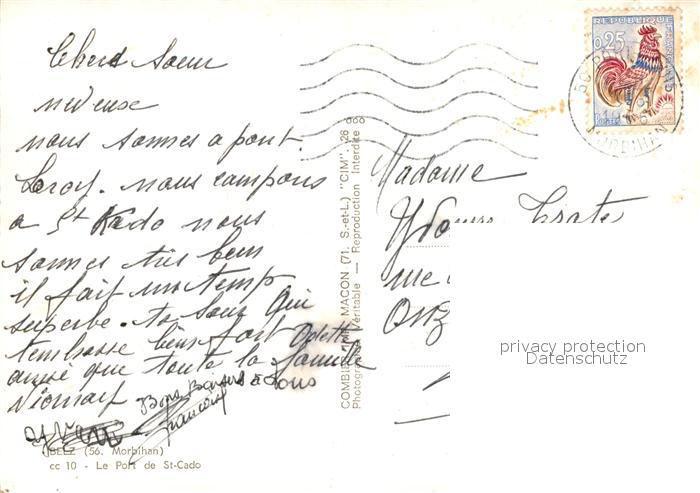 Chere Soeur
neveuse
nous sommes a pont.
Leroy. nous campons
a St Kado nous
sommes très bien
il fait un temp
superbe. ta soeur qui
tembrasse bien fort Odette
ainsi que toute la famille
Bons Baisers à tous
Francine
BELZ (56. Morbihan)
cc 10 - Le Port de St-Cado
COMBIER MACON (71. S.-et-L.) "CIM". 26
Photographie Véritable — Reproduction Interdite
REPUBLIQUE FRANCAISE
0,25
MORBIHAN
Madame
rue
privacy protection
Datenschutz